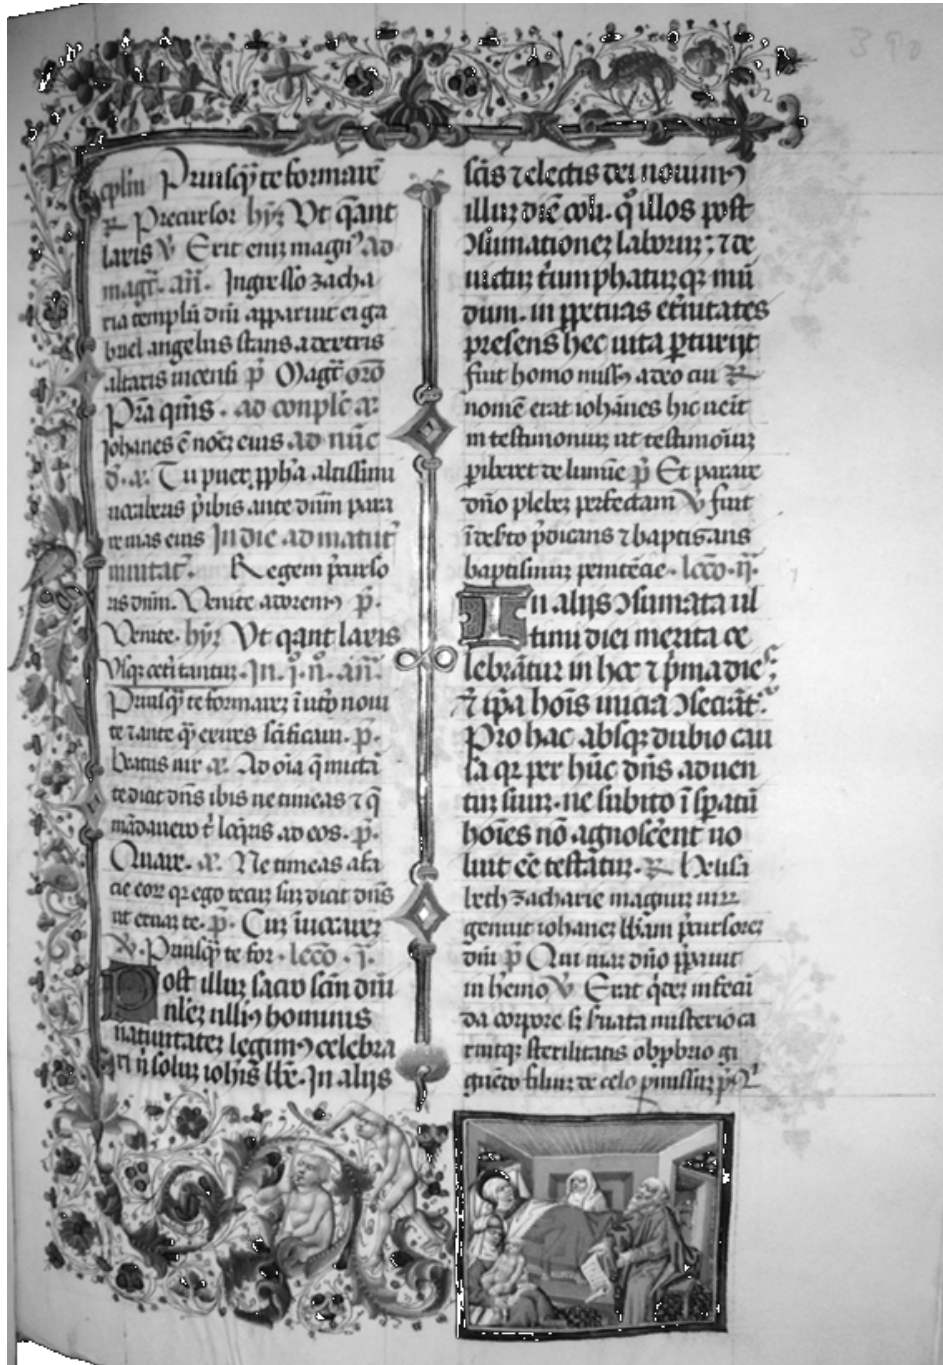 cplm Priusq̄ te formare
R Precursor hȳ Vt q̄ant
laxis V Erit eni magn⁹ ad
magt. an̄. Ingresso zacha
ria templū dn̄i apparuit ei ga
briel angelus stans a dextris
altaris incensi p̄ Magt orō
ad conplē a
Johanes ē nōē eius ad nūc
Tu puer pph̄a altissimi
p̄ibis ante dn̄m para
re uias eius In die ad matut
inuitat. Regem p̄curso
ris dn̄m. Venite adorem⁹ p̄.
Venite. hȳ Vt qant laxis
In .i. n̄. an̄
Priusq̄ te formare ī utō noui
te z ante q̄
beatus uir a. Ad oīa q̄ mittā
te dicit dn̄s ibis ne timeas z q̄
mādauero t ad eos. p̄.
Quare. a. Ne timeas a fa
cie eor qr ego tecū sū dicit dn̄s
ut eruar te. p̄. Cū īuocarē
V. Priusq̄ te for. lcco. i.
Post illū sacrō scm̄ dn̄i
nlēz ulli⁹ hominis
natiuitatez legim⁹ celebra
ri n̄ solū iohīs bt̄e. In alijs
scīs z electis dei nouim⁹
illū diē coli. q̄ illos post
ɔsumationez laborū: z de
uictū t̄umphatūqz mū
dum. in ppetuas et̄nitates
presens hec uita pturijt
fuit homo miss⁹ a deo cui R
nomē erat iohānes hic ueīt
in testimoniū ut testimoīuz
phiberet de lumīe p̄ Et parare
dn̄o plebez perfectam V fuit
ī deserto p̄dicans z baptizans
baptismū penitēcie. lcco. ii.
In alijs ɔsumata ul
timi diei merita ce
lebrātur in hoc z p̄ma dies
z ipā hoīs inicia ɔsecrāt.
Pro hac absqz dubio cau
sa qr per hūc dn̄s aduen
tū suū. ne subito īspatū
hoīes nō agnoscēnt uo
luit ēē testātur. R helisa
beth zacharie magnū uir
genuit iohanez p̄cursorez
dn̄i p̄ Qui uiā dn̄o pparuit
in hēmo V Erat
da corpore s
ritqz sterilitatis obpbrio gi
gnēdo filiū de celo